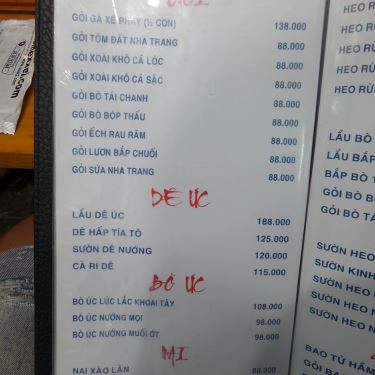 GỎI
GỎI GÀ XÉ PHAY (½ CON) 138.000
GỎI TÔM ĐẤT NHA TRANG 88.000
GỎI XOÀI KHÔ CÁ LÓC 88.000
GỎI XOÀI KHÔ CÁ SẶC 88.000
GỎI BÒ TÁI CHANH 88.000
GỎI BÒ BÓP THẤU 88.000
GỎI ẾCH RAU RĂM 88.000
GỎI LƯƠN BẮP CHUỐI 88.000
GỎI SỨA NHA TRANG 88.000
DÊ ÚC
LẨU DÊ ÚC 188.000
DÊ HẤP TÍA TÔ 125.000
SƯỜN DÊ NƯỚNG 120.000
CÀ RI DÊ 115.000
BÒ ÚC
BÒ ÚC LÚC LẮC KHOAI TÂY 108.000
BÒ ÚC NƯỚNG MỌI 98.000
BÒ ÚC NƯỚNG MUỐI ỚT 98.000
NAI XÀO LĂN
HEO RỪ
HEO RỪ
HEO RỪ
HEO RỪ
LẨU BÒ
LẨU BẮP
BẮP BÒ
GỎI BÒ
GỎI BÒ TÁ
SƯỜN HEO
SƯỜN KINH
SƯỜN HEO
SƯỜN HEO N
SƯỜN HEO N
BAO TỬ HẦM
GỎI BA